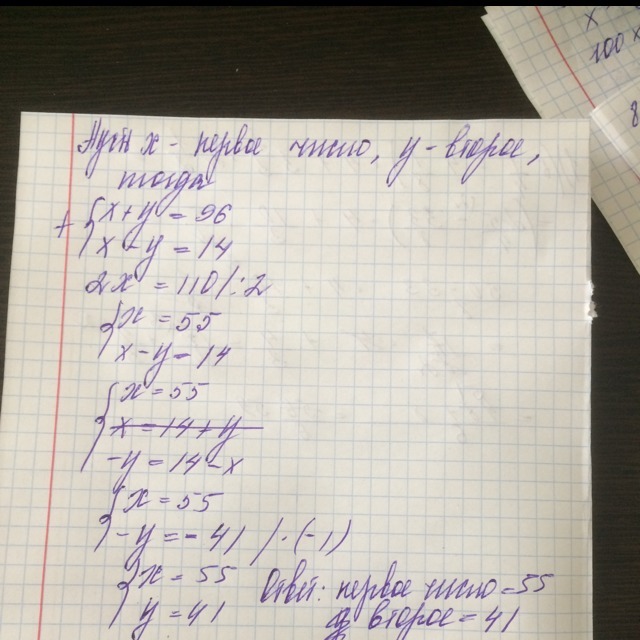 x
100 x
8
Пусть x - первое число, y - второе,
тогда
+ { x + y = 96
x - y = 14
2x = 110 /:2
{ x = 55
x - y = 14
{ x = 55
x = 14 + y
-y = 14 - x
{ x = 55
-y = - 41 / · (-1)
{ x = 55
y = 41
Ответ: первое число = 55
второе = 41